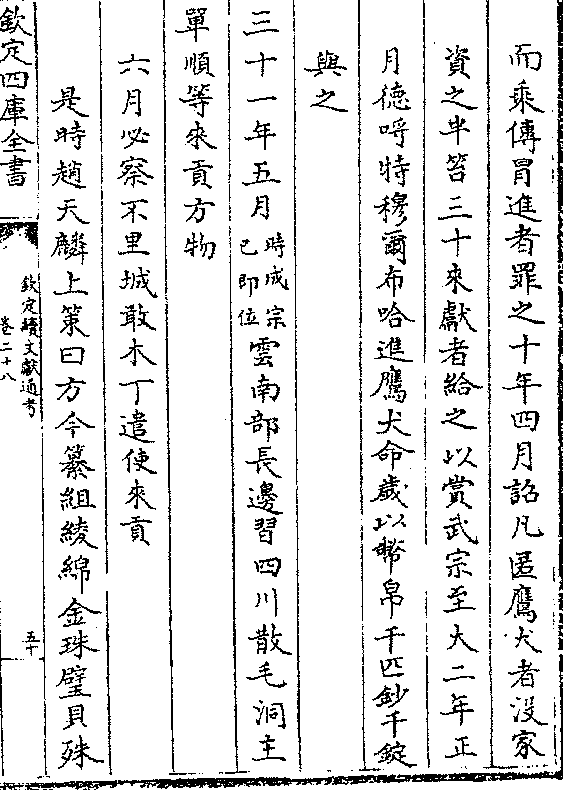 而乘傳冒進者罪之十年四月詔凡匿鷹犬者沒家
資之半笞三十來獻者給之以賞武宗至大二年正
月徳哷特穆爾布哈進鷹犬命歲以幣帛千匹鈔千錠
與之
三十一年五月時成宗已即位雲南部長邊習四川散毛洞主
單順等來貢方物
六月必察不里城敢木丁遣使來貢
是時趙天麟上策曰方今纂組綾綿金珠璧貝殊
欽定四庫全書
欽定續文獻通考
卷二十八
五十